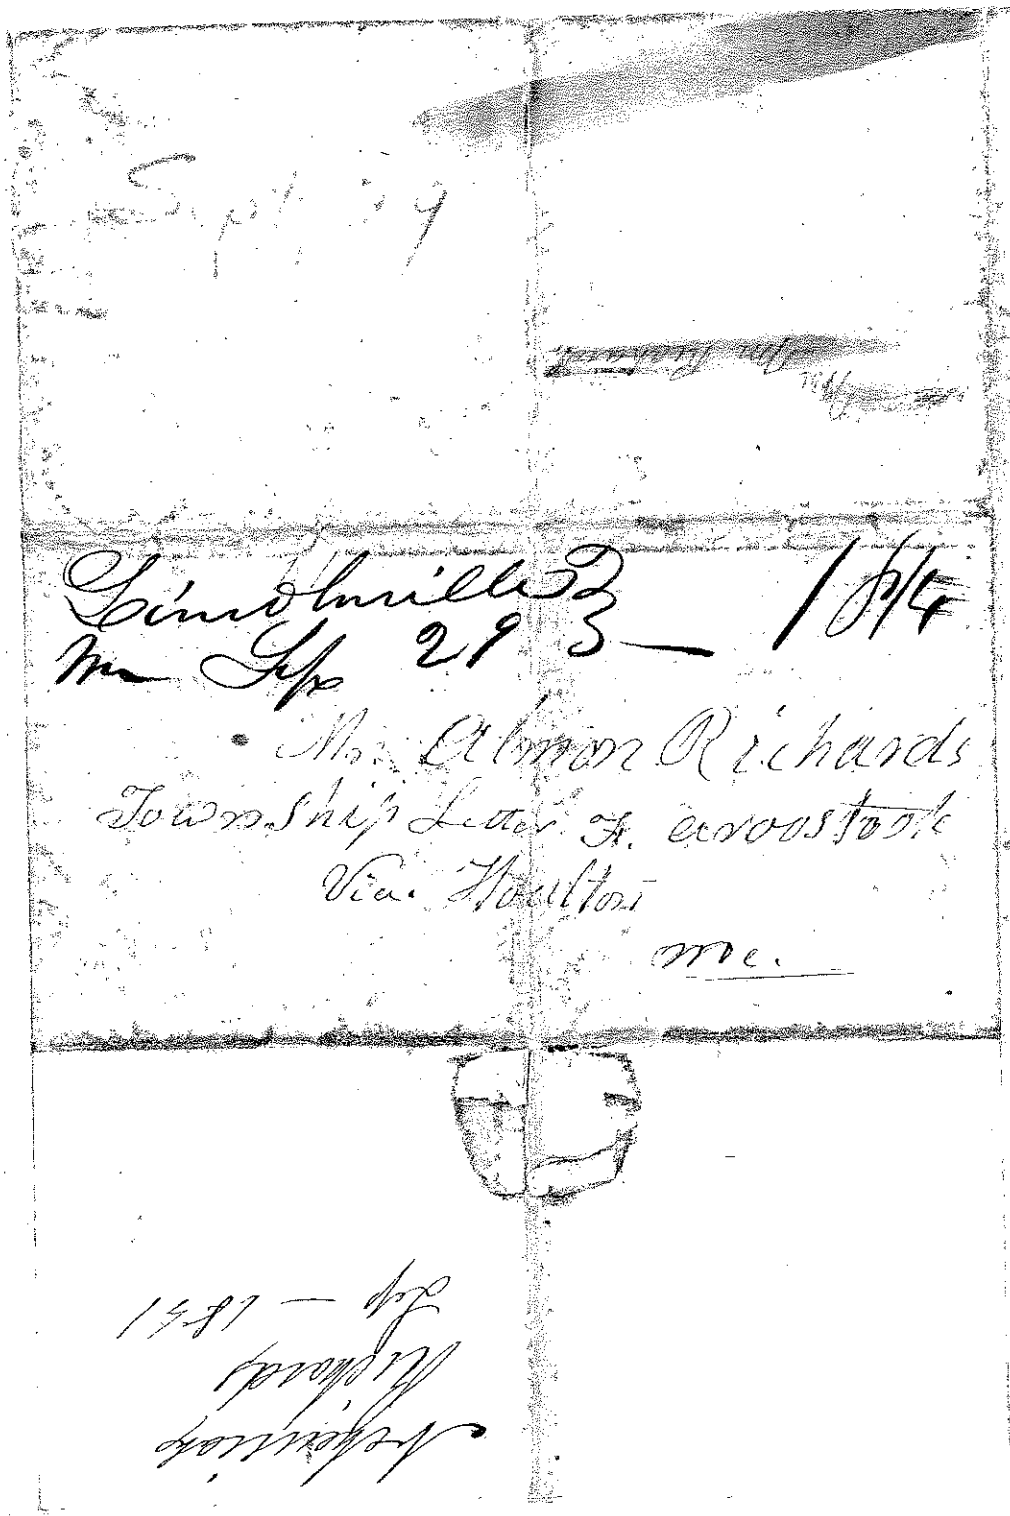 Sept 29
Lincolnville 3 18¾
Me Sep 29
Mr. Almon Richards
Township Letter F. aroostook
Via. Houlton
Me.
Nehemiah
Richards
Sep — 1831